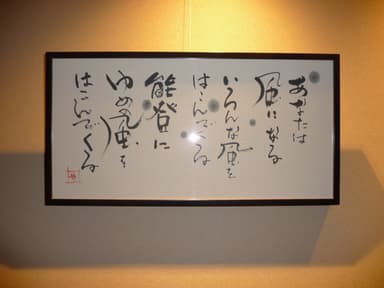 あなたは
風になる
いろんな風を
はこんでくる
能登に
ゆめの風を
はこんでくる